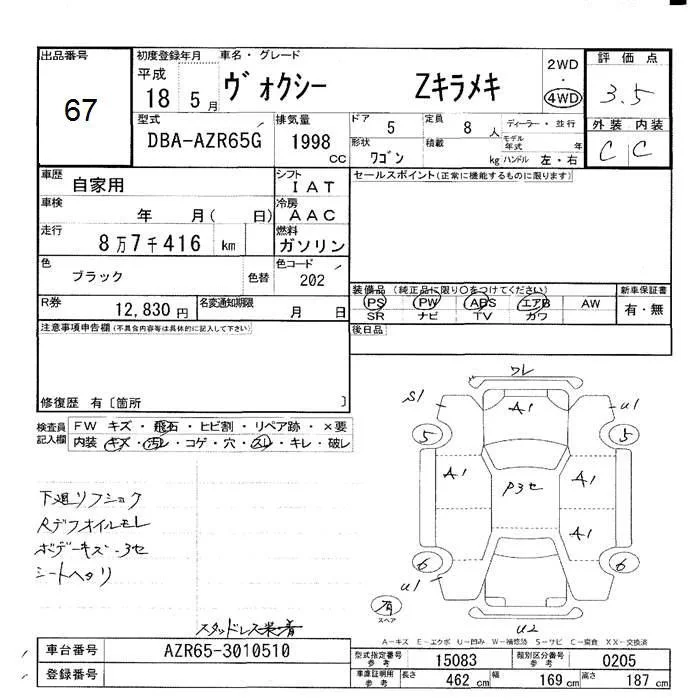 出品番号
67
初度登録年月 車名・グレード
平成 18 5月
ヴォクシー Zキラメキ
2WD
・
4WD
評価点
3.5
外装 内装
C C
型式
DBA-AZR65G
排気量
1998 cc
ドア 5
定員 8 人
ディーラー・並行
形状 ワゴン
積載 kg
モデル年式 年
ハンドル 左・右
車歴
自家用
シフト
IAT
セールスポイント(正常に機能するものに限ります)
車検
年 月( 日)
冷房
AAC
走行
8万7千416 km
燃料
ガソリン
色
ブラック
色替
色コード
202
装備品 (純正品に限り○をつけてください)
PS PW ABS エアB AW
SR ナビ TV カワ
新車保証書
有・無
R券
12,830円
名変通知期限
月 日
後日品
注意事項申告欄(不具合内容等は具体的に記入して下さい)
修復歴 有〔箇所 〕
検査員記入欄
FW キズ・飛石・ヒビ割・リペア跡・×要
内装・キズ・汚レ・コゲ・穴・スレ・キレ・破レ
下廻リフショク
Rデフオイルモレ
ボデーキズ・3セ
シートヘタリ
スタッドレス装着
ワレ
S1 A1 U1
5 5
A1 P3セ A1
A1
6 6
U1
U2
有
スペア
A-キズ E-エクボ U-凹み W-補修跡 S-サビ C-腐食 XX-交換済
車台番号 AZR65-3010510
登録番号
型式指定番号 参考 15083
類別区分番号 参考 0205
車庫証明用 参考 長さ 462 cm 幅 169 cm 高さ 187 cm